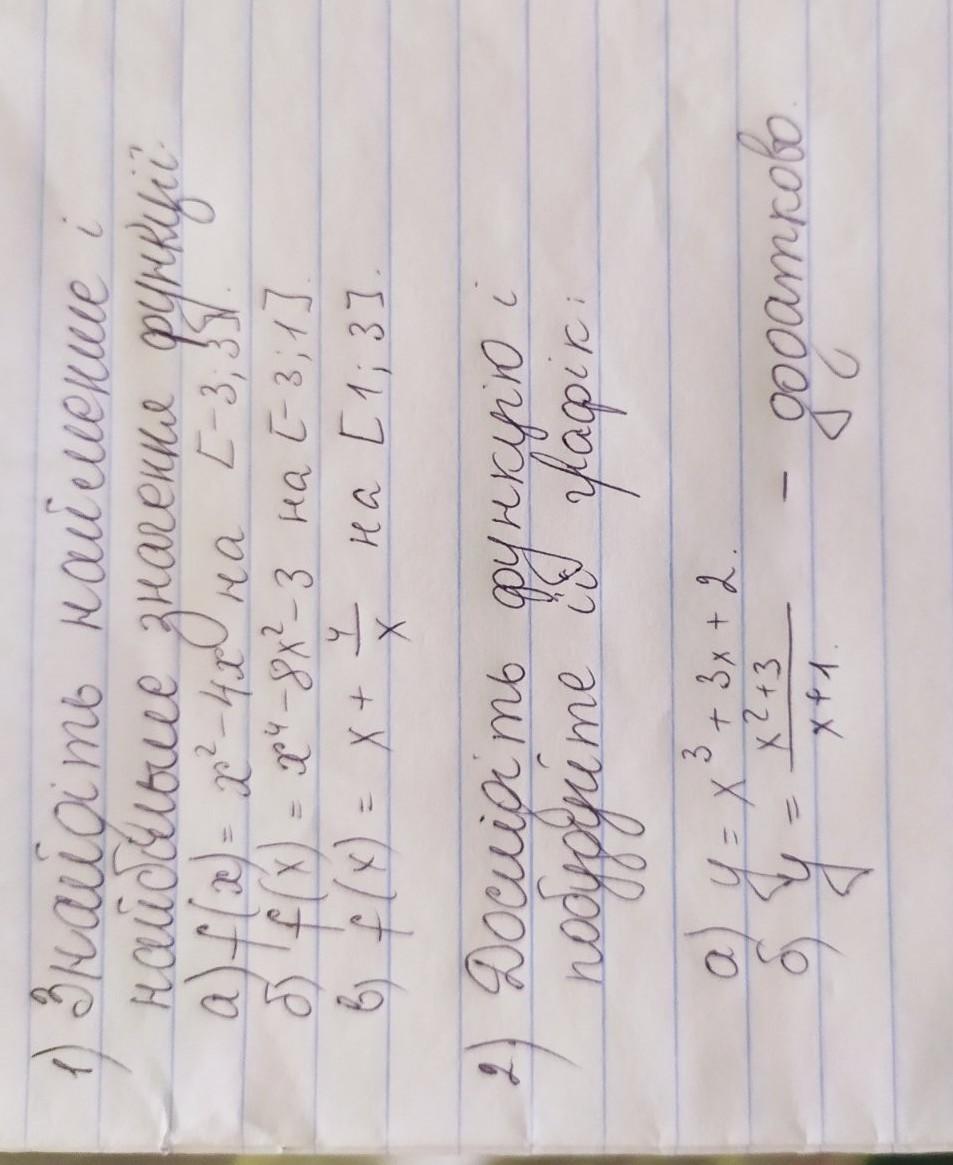 1) Знайдіть найменше і
найбільше значення функції.
а) f(x) = x² - 4x на [-3; 3].
б) f(x) = x⁴ - 8x² - 3 на [-3; 1].
в) f(x) = x + 4/x на [1; 3].
2) Дослідіть функцію і
побудуйте її графік:
а) y = x³ + 3x + 2.
б) y = x²+3 / x+1. - додатково.